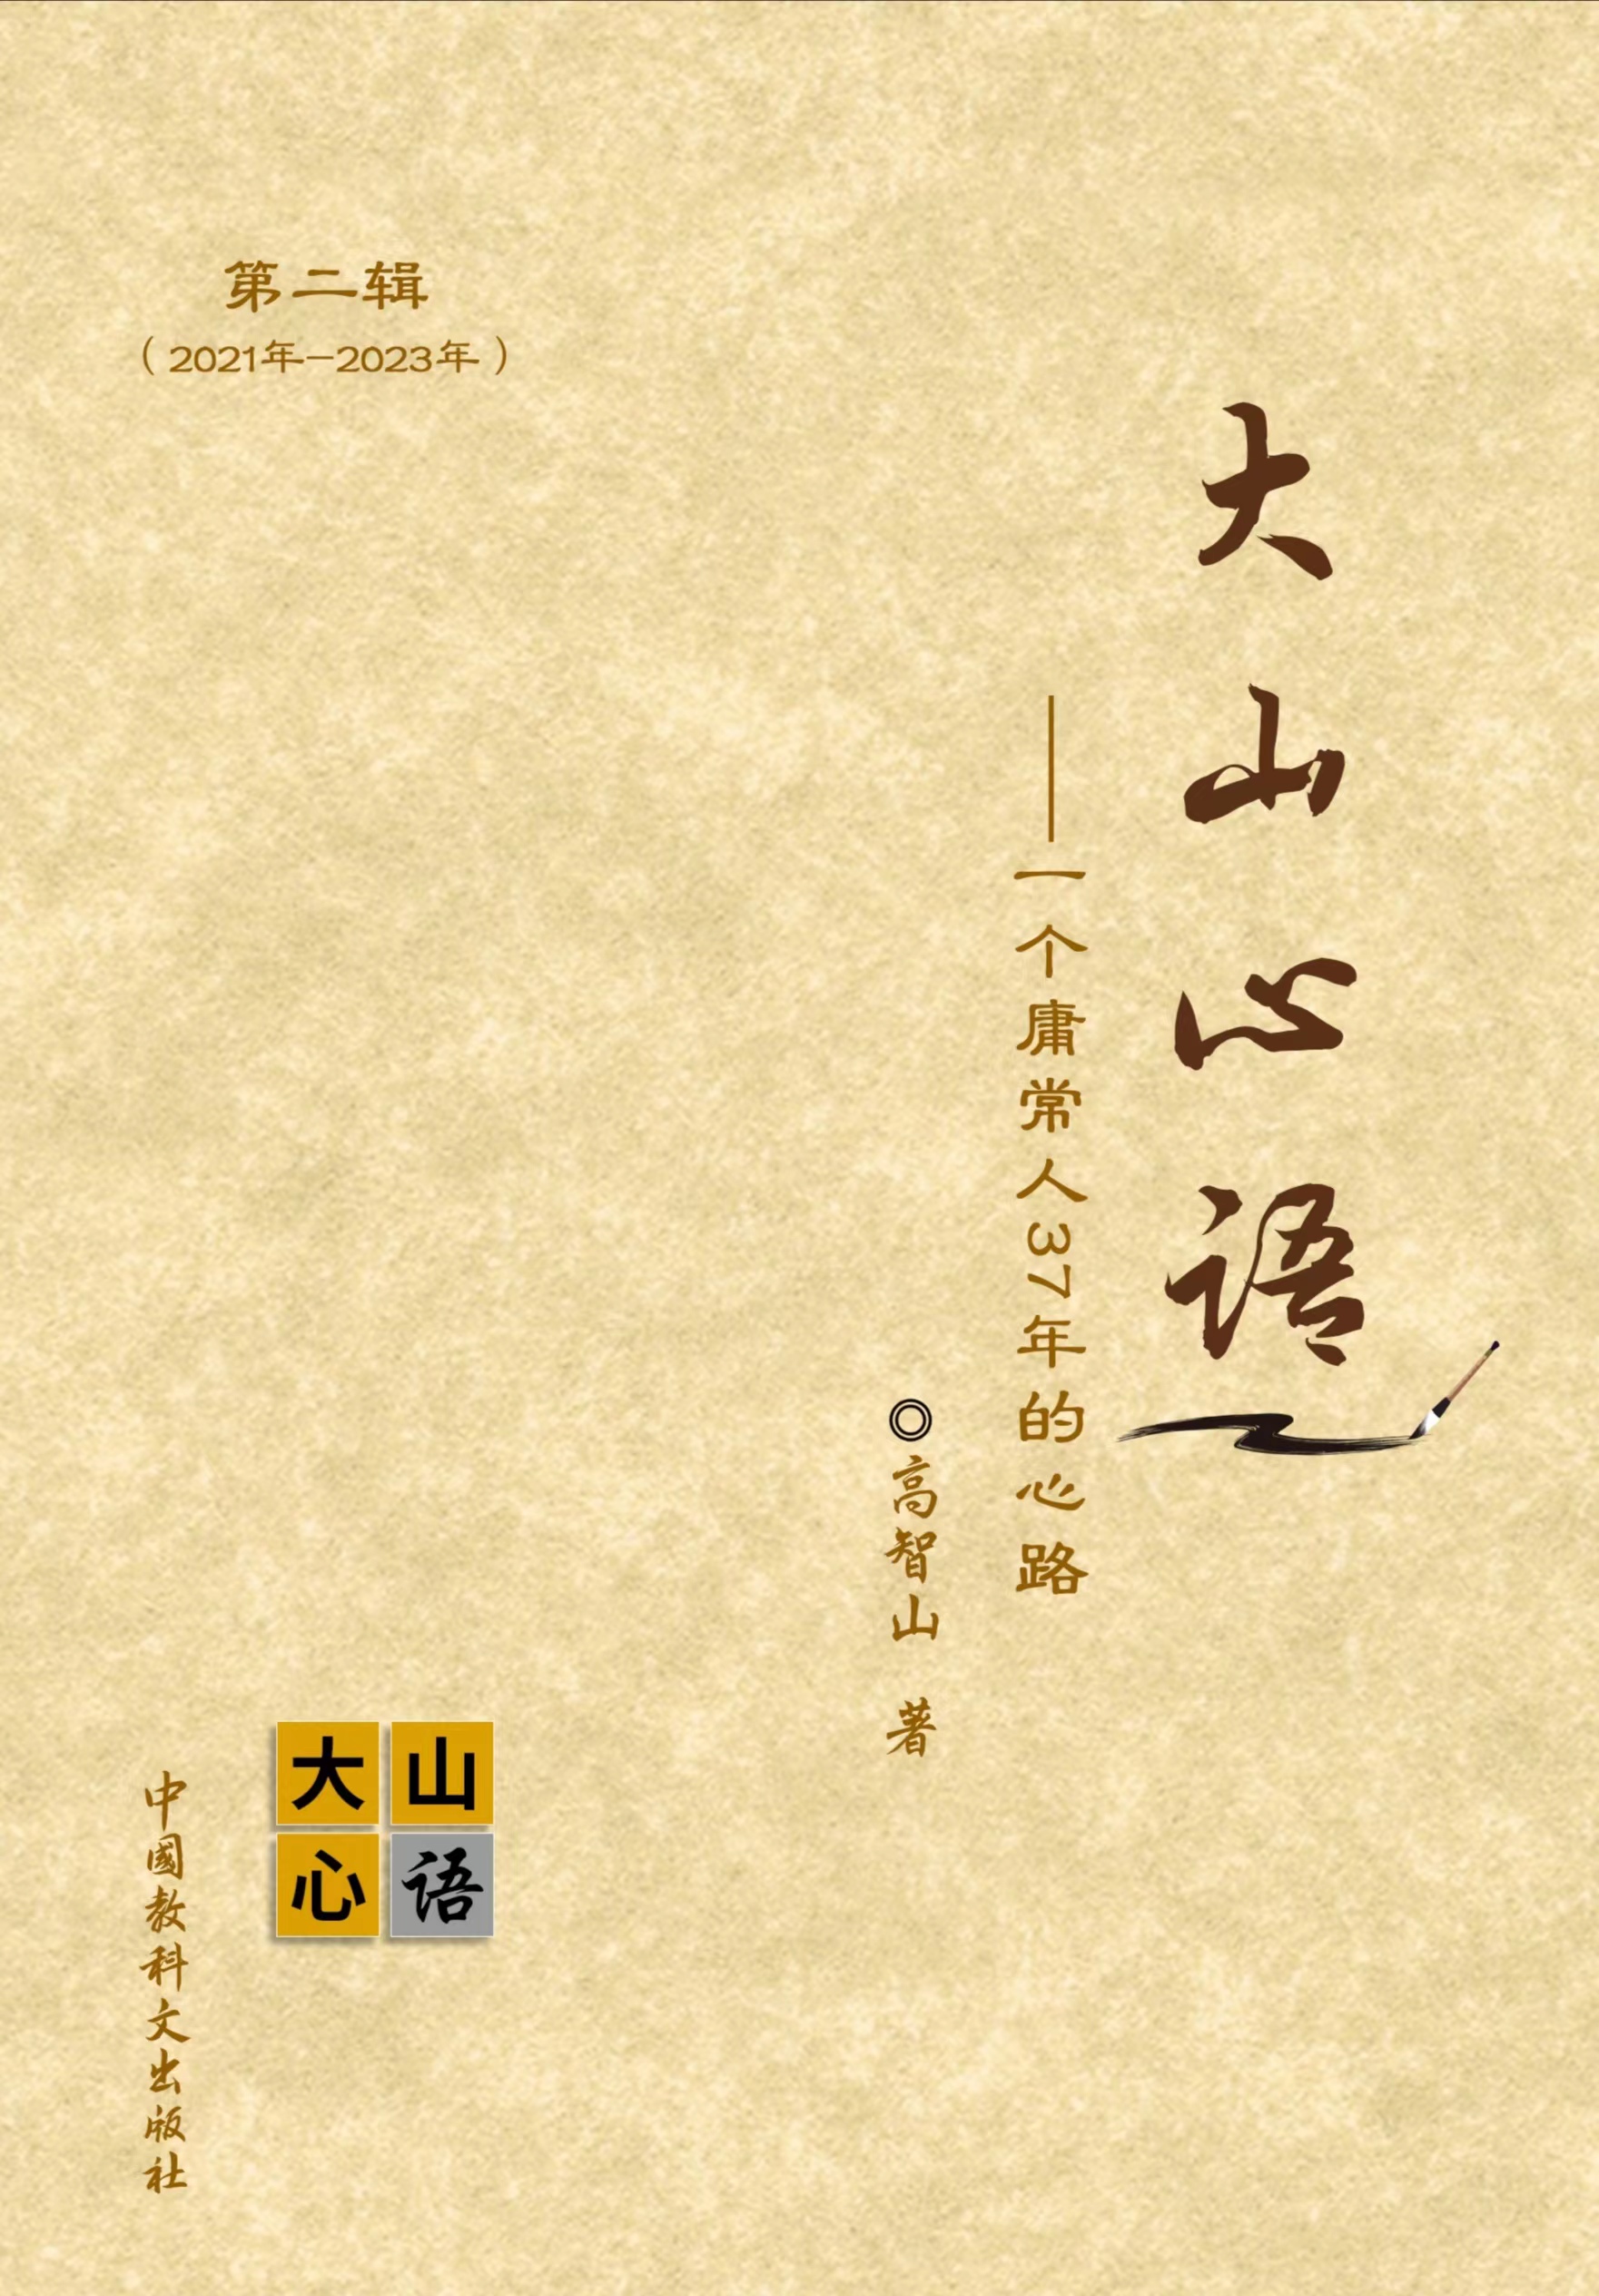 第二辑
（2021年-2023年）
大山心语
——一个庸常人37年的心路
◎高智山 著
大山
心语
中國教科文出版社